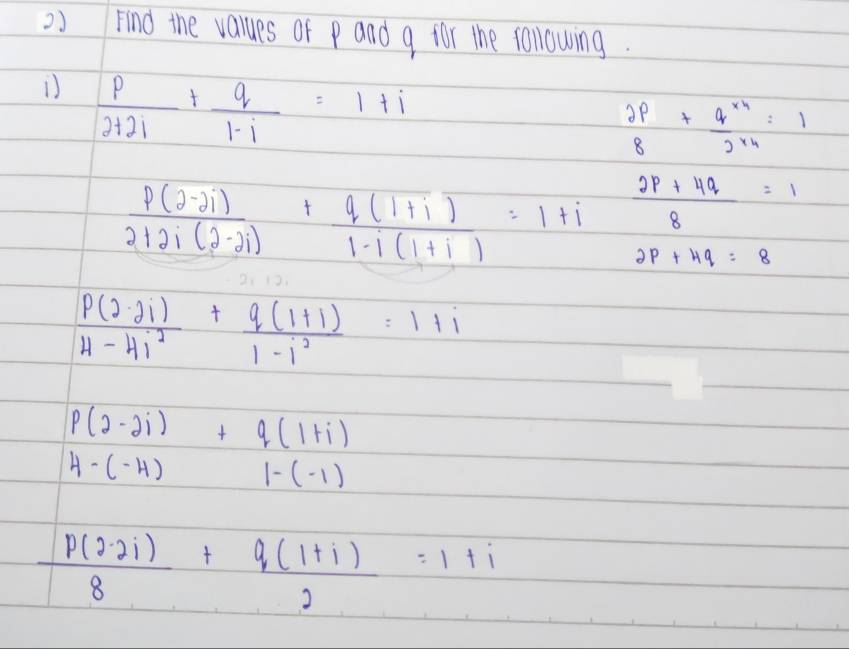 2) Find the values of p and q for the following.
i) p/(2+2i) + q/(1-i) = 1+i
p(2-2i)/(2+2i(2-2i)) + q(1+i)/(1-i(1+i)) = 1+i
p(2-2i)/(4-4i²) + q(1+i)/(1-i²) = 1+i
p(2-2i)/(4-(-4)) + q(1+i)/(1-(-1))
p(2-2i)/8 + q(1+i)/2 = 1+i
2p/8 + q^×4/2^×4 = 1
(2p+4q)/8 = 1
2p + 4q = 8